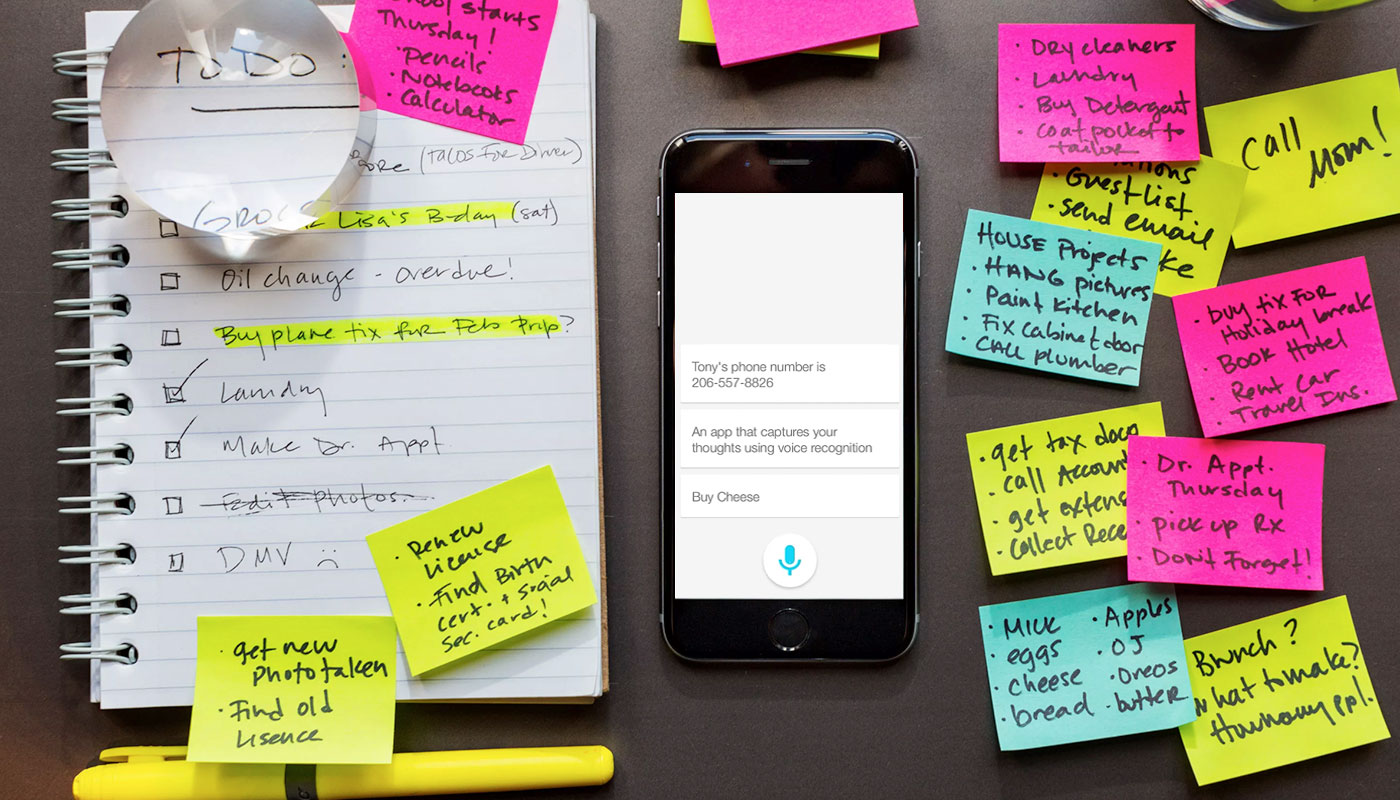 TO DO:
school starts
Thursday!
· Pencils
· Notebooks
· Calculator
(Tacos For Dinner)
Lisa's B-day (sat)
Oil change - overdue!
Buy plane tix for Feb Trip?
Laundry
Make Dr. Appt.
Edit photos
DMV ☹
· Renew
License
· Find Birth
cert. + social
sec. card!
· get new
photo taken
· Find old
Lisence
Tony's phone number is
206-557-8826
An app that captures your
thoughts using voice recognition
Buy Cheese
· DRY cleaners
· Laundry
· Buy Detergent
· coat pocket to
tailor
Call
Mom!
· Guest list
· send email
HOUSE Projects
· HANG pictures
· Paint Kitchen
· Fix cabinet door
· CALL plumber
· buy tix FOR
Holiday break
· BOOK Hotel
· Rent Car
· Travel Ins.
· get tax docs
· call
· get
· collect
· Dr. Appt.
Thursday
· pick up Rx
· Don't Forget!
· Milk
· eggs
· cheese
· bread
· Apples
· OJ
· Oreos
· butter
Brunch?
what to make?
How many ppl.